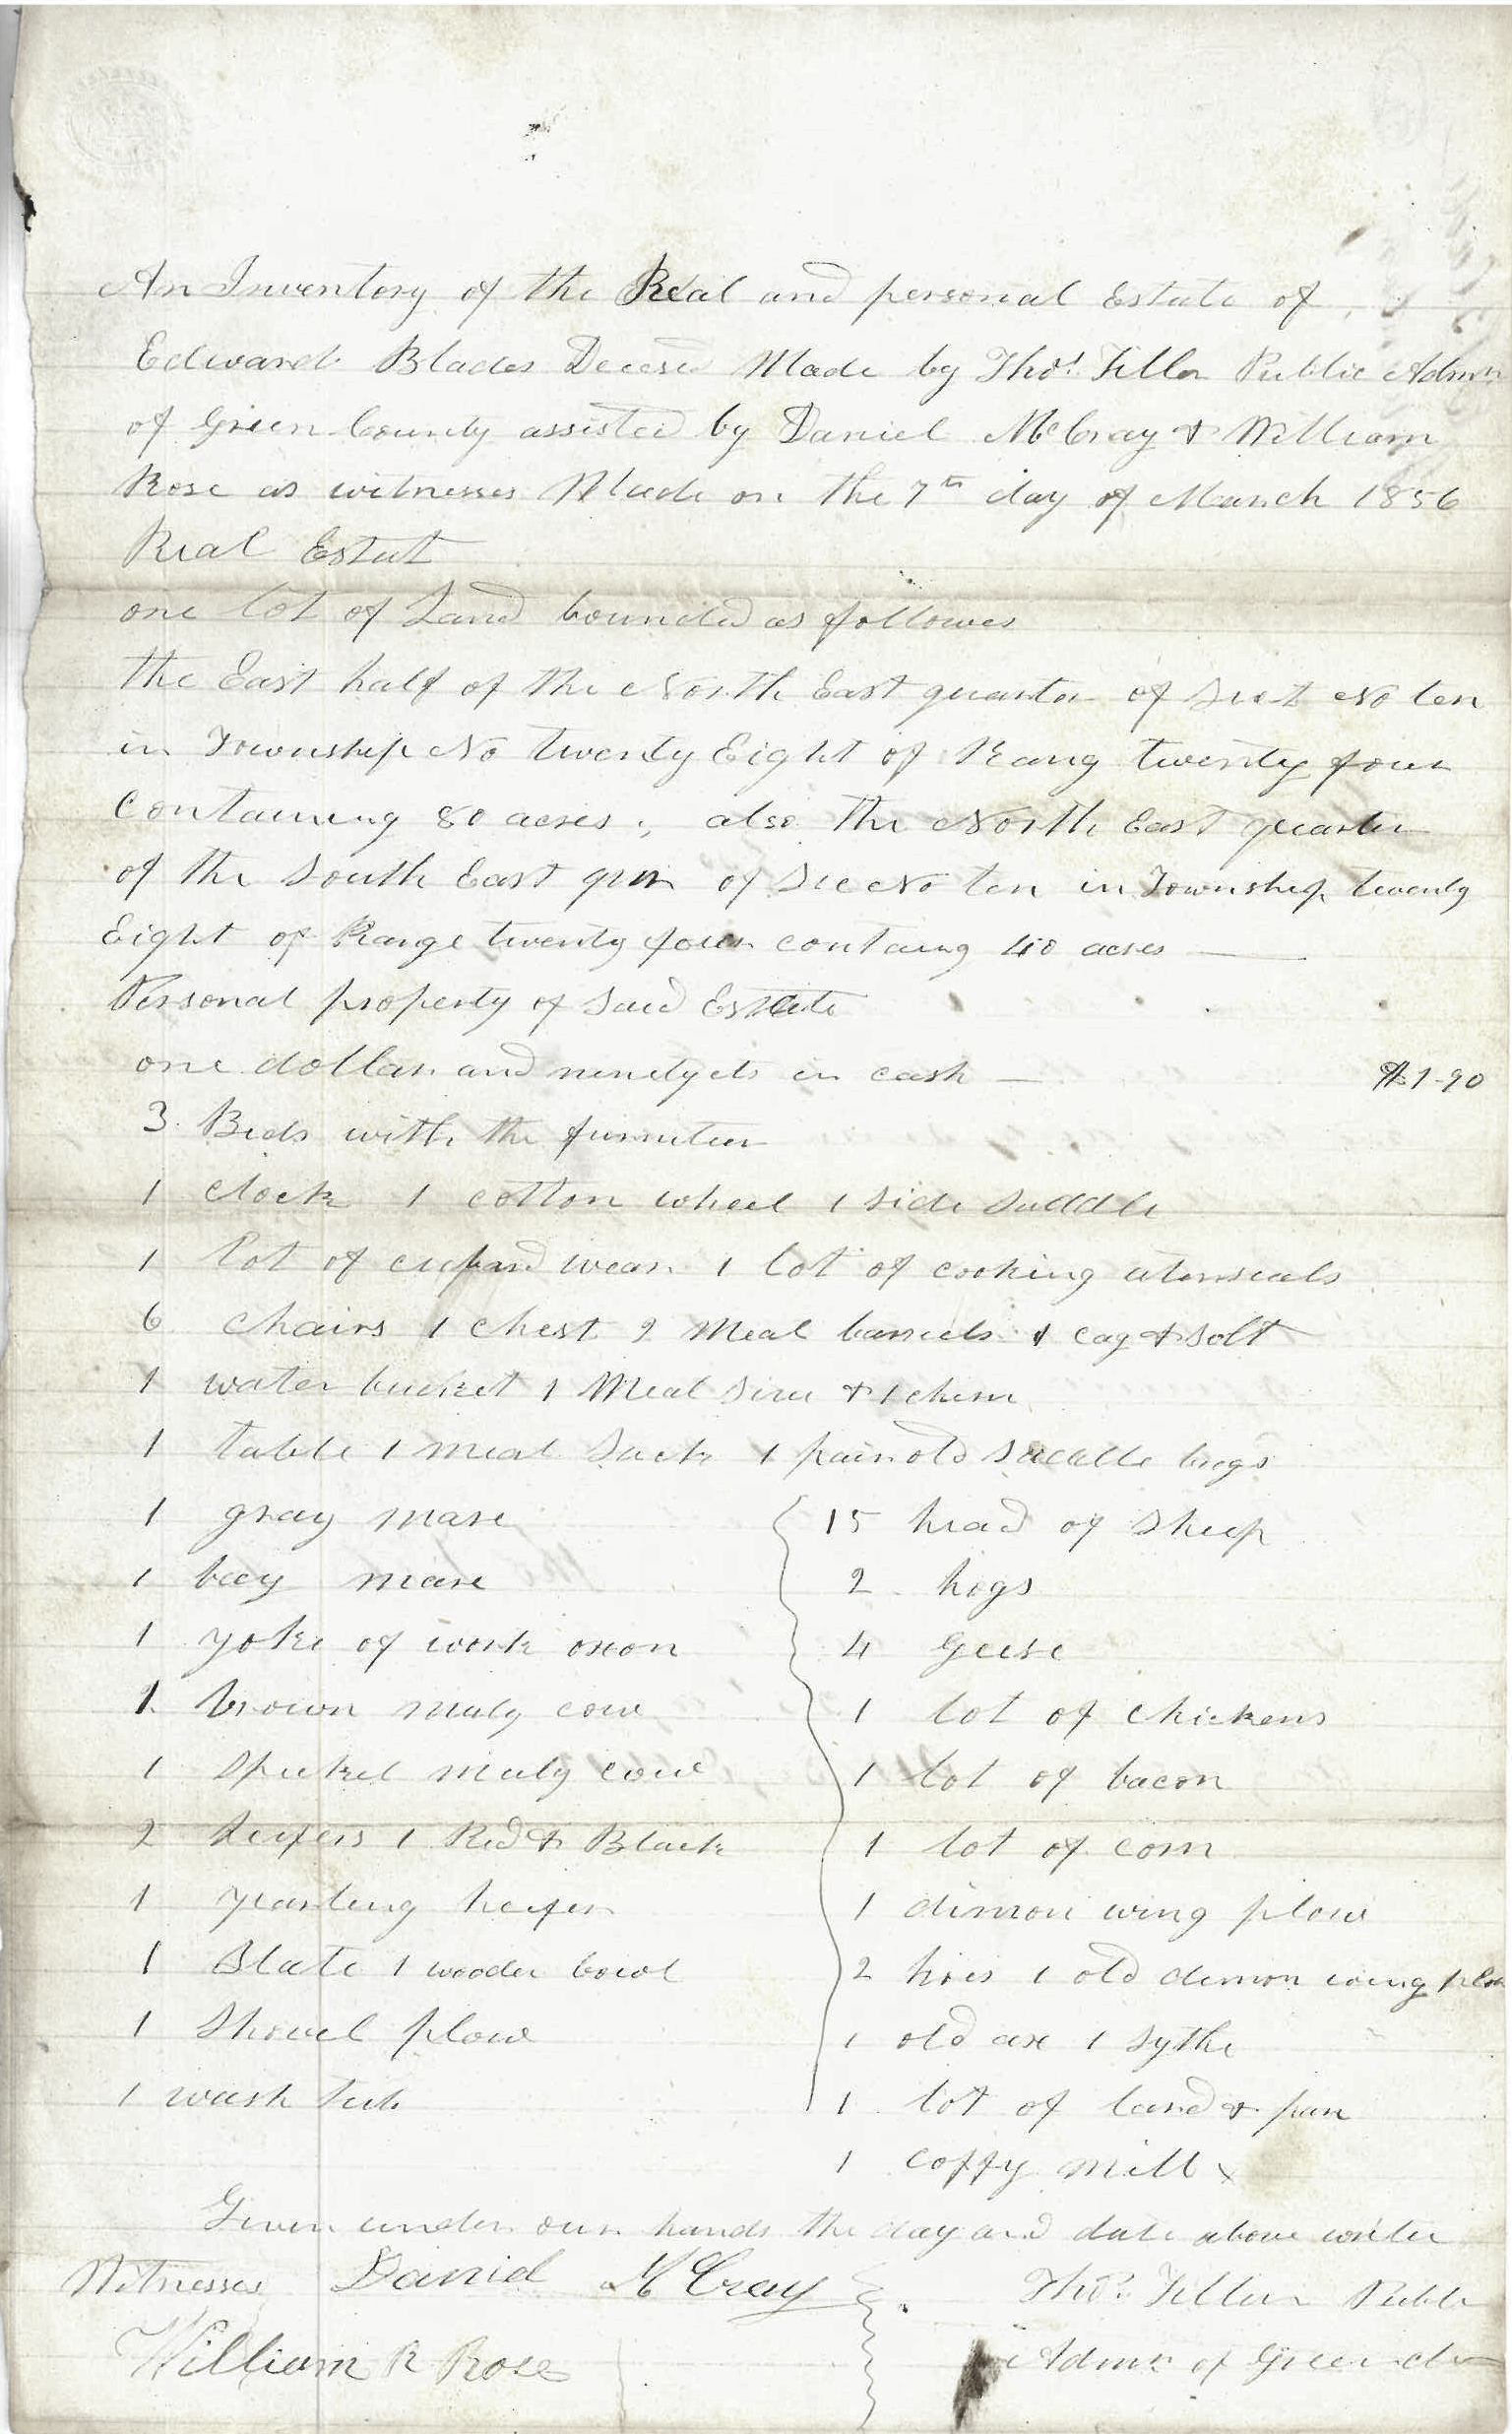 An Inventory of the Real and personal Estate of
Edward Blades Decesd Made by Thos. Tiller Public Admr
of Green County assisted by Daniel McCray & William
Rose as witnesses Made on the 7th day of March 1856
Real Estat
one lot of Land bounded as followes
the East half of the North East quarter of Sect No ten
in Township No twenty Eight of Rang twenty four
Containing 80 acres, also the North East quarter
of the South East qur of Sec No ten in Township twenty
Eight of Range twenty four containg 40 acres
Personal property of Said Estate
one dollar and ninety cts in cash — $1-90
3 Beds with the furnitur
1 clock 1 cotton wheel 1 side saddle
1 lot of cupard wear 1 lot of cooking utenseals
6 chairs 1 chest 2 Meal barriels 1 cag & Solt
1 water bucket 1 Meal Sive & 1 chern
1 table 1 meal Sack 1 pair old Sadalle bags
1 gray mare
1 bay mare
1 yoke of work oxon
1 brown muly cow
1 Speckel muly cow
2 heifers 1 Red & Black
1 yearling heifer
1 Slate 1 wooden bowl
1 Shovel plow
1 wash tub
15 head of Sheep
2 hogs
4 Geese
1 lot of chickens
1 lot of bacon
1 lot of corn
1 dimon wing plow
2 hoes 1 old dimon wing plow
1 old axe 1 Sythe
1 lot of lard & pan
1 coffy mill
Given under our hands the day and date above writen
Witnesses Daniel McCray
William R Rose
Thos. Tiller Public
Admr of Green